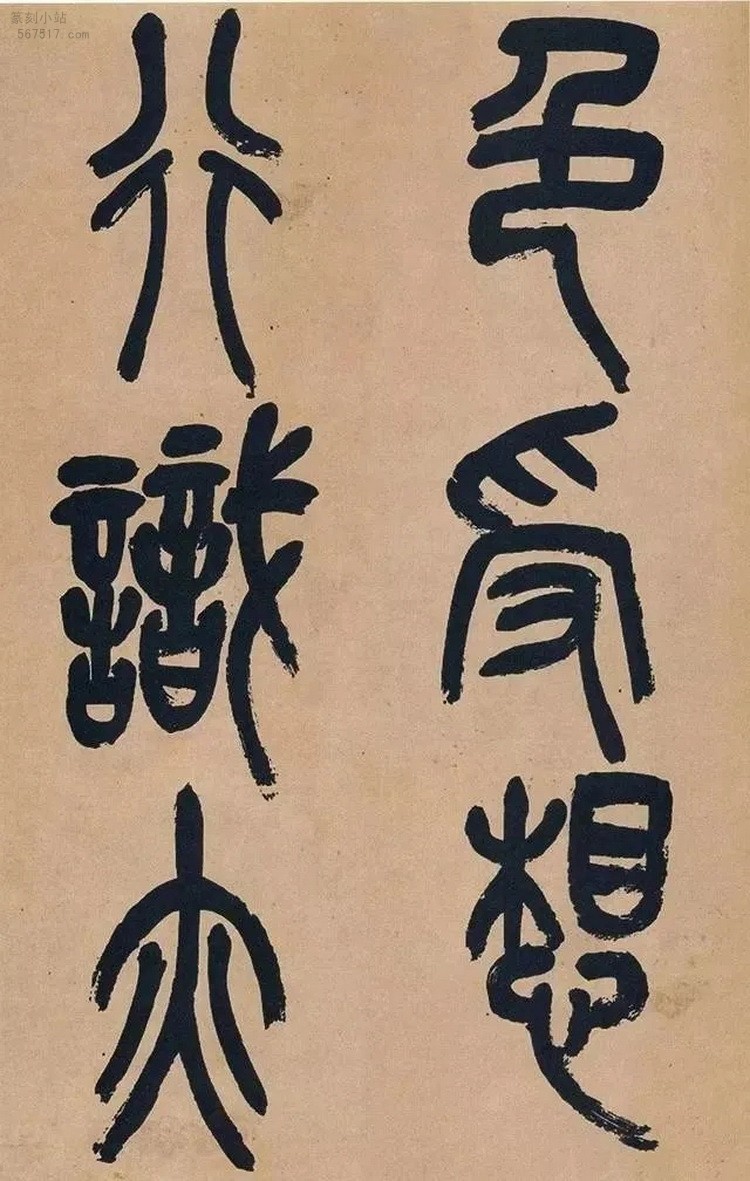 色受想
行識亦
篆刻小站
567817.com